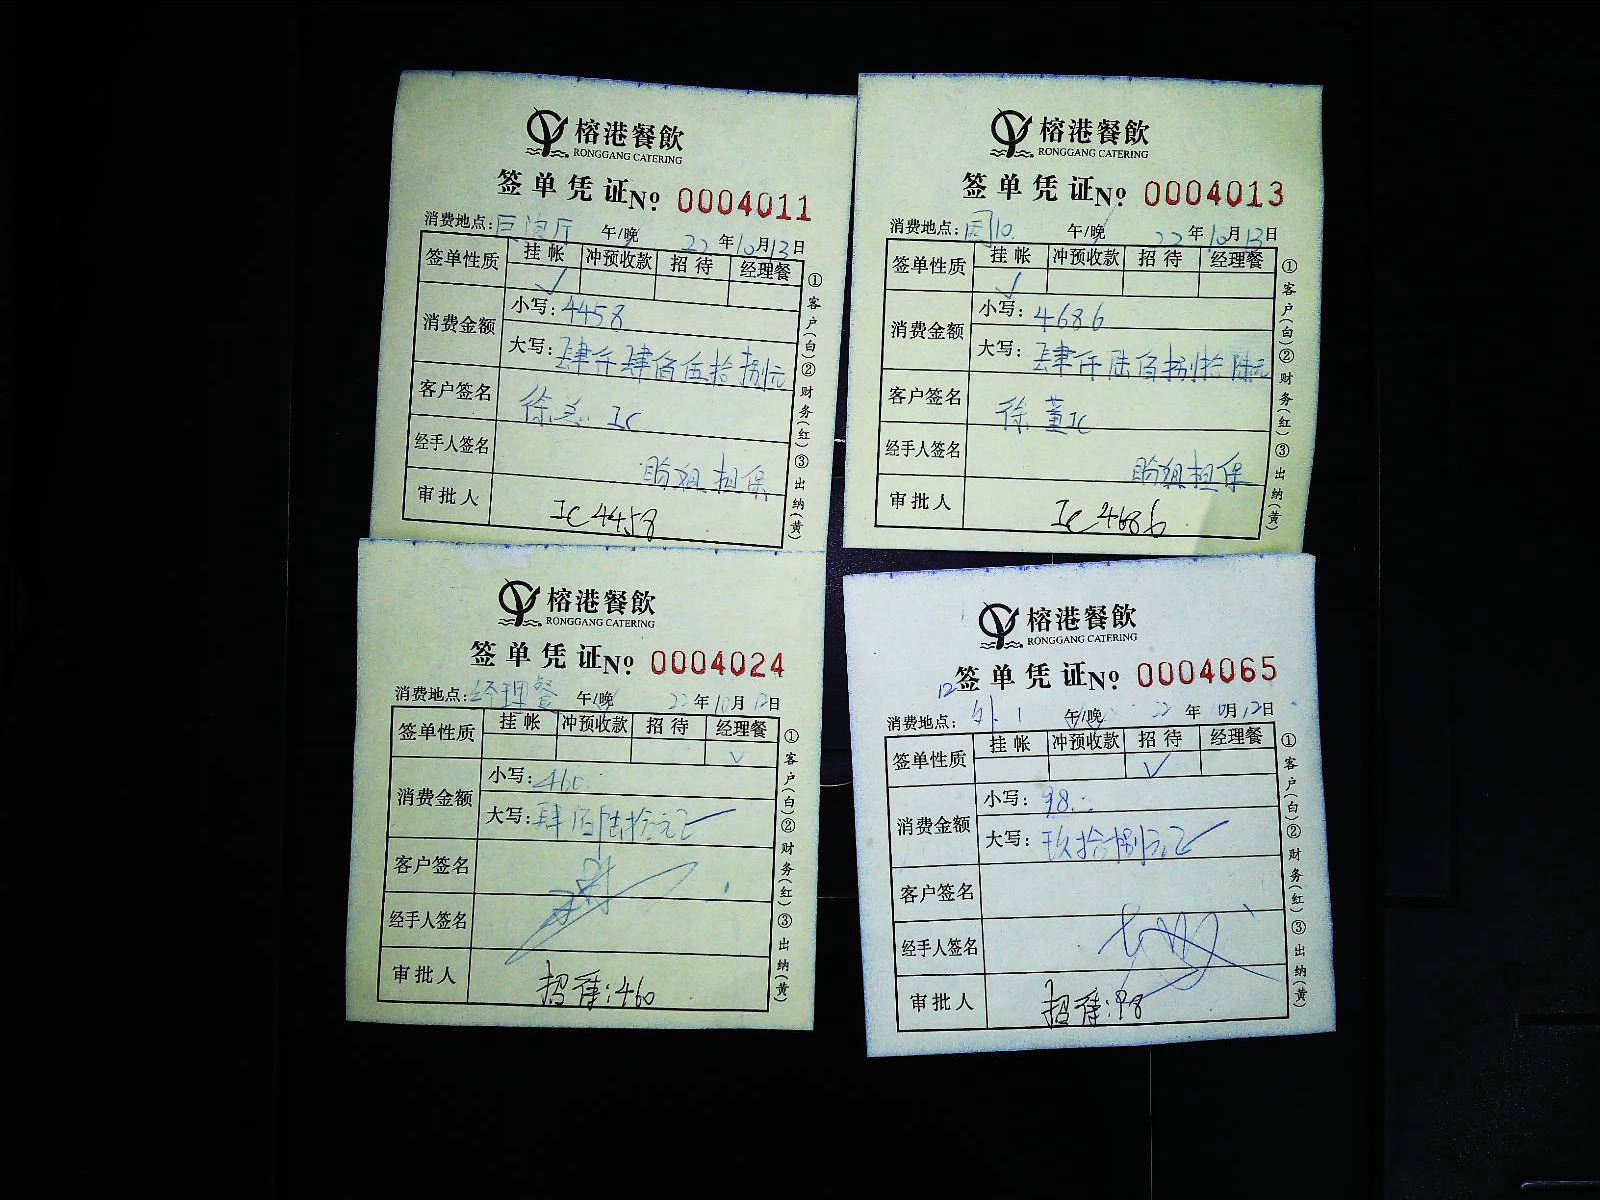 榕港餐飲
RONGGANG CATERING
签单凭证№ 0004011
消费地点: 厅 午/晚 22年10月13日
签单性质 挂帐 冲预收款 招待 经理餐
√
消费金额 小写: 4458
大写: 肆仟肆佰伍拾捌元
客户签名 徐 IC
经手人签名 担保
审批人 IC 4458
①客户(白)②财务(红)③出纳(黄)
榕港餐飲
RONGGANG CATERING
签单凭证№ 0004013
消费地点: 10 午/晚 22年10月13日
签单性质 挂帐 冲预收款 招待 经理餐
√
消费金额 小写: 4686
大写: 肆仟陆佰捌拾陆元
客户签名 徐董IC
经手人签名 担保
审批人 IC 4686
①客户(白)②财务(红)③出纳(黄)
榕港餐飲
RONGGANG CATERING
签单凭证№ 0004024
消费地点: 经理餐 午/晚 22年10月12日
签单性质 挂帐 冲预收款 招待 经理餐
√
消费金额 小写: 460
大写: 肆佰陆拾元正
客户签名
经手人签名
审批人 招待:460
①客户(白)②财务(红)③出纳(黄)
榕港餐飲
RONGGANG CATERING
签单凭证№ 0004065
12
消费地点: 外1 午/晚 22年10月12日
签单性质 挂帐 冲预收款 招待 经理餐
√
消费金额 小写: 98
大写: 玖拾捌元正
客户签名
经手人签名
审批人 招待:98
①客户(白)②财务(红)③出纳(黄)